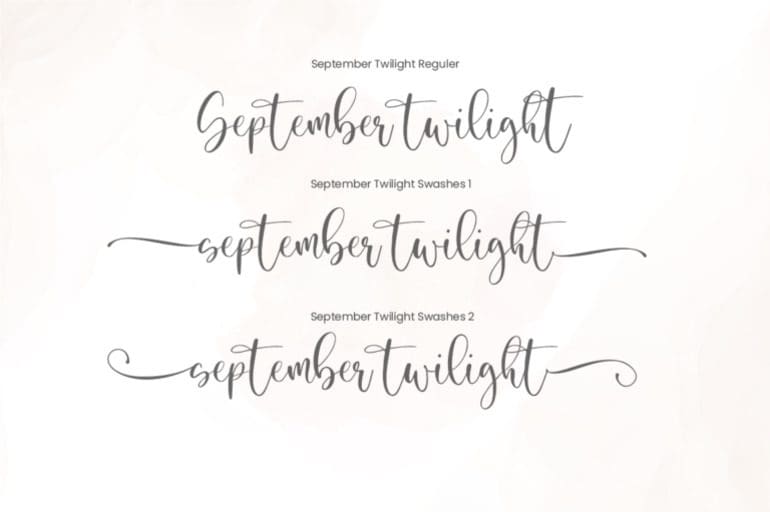 September Twilight Reguler
September twilight
September Twilight Swashes 1
september twilight
September Twilight Swashes 2
september twilight